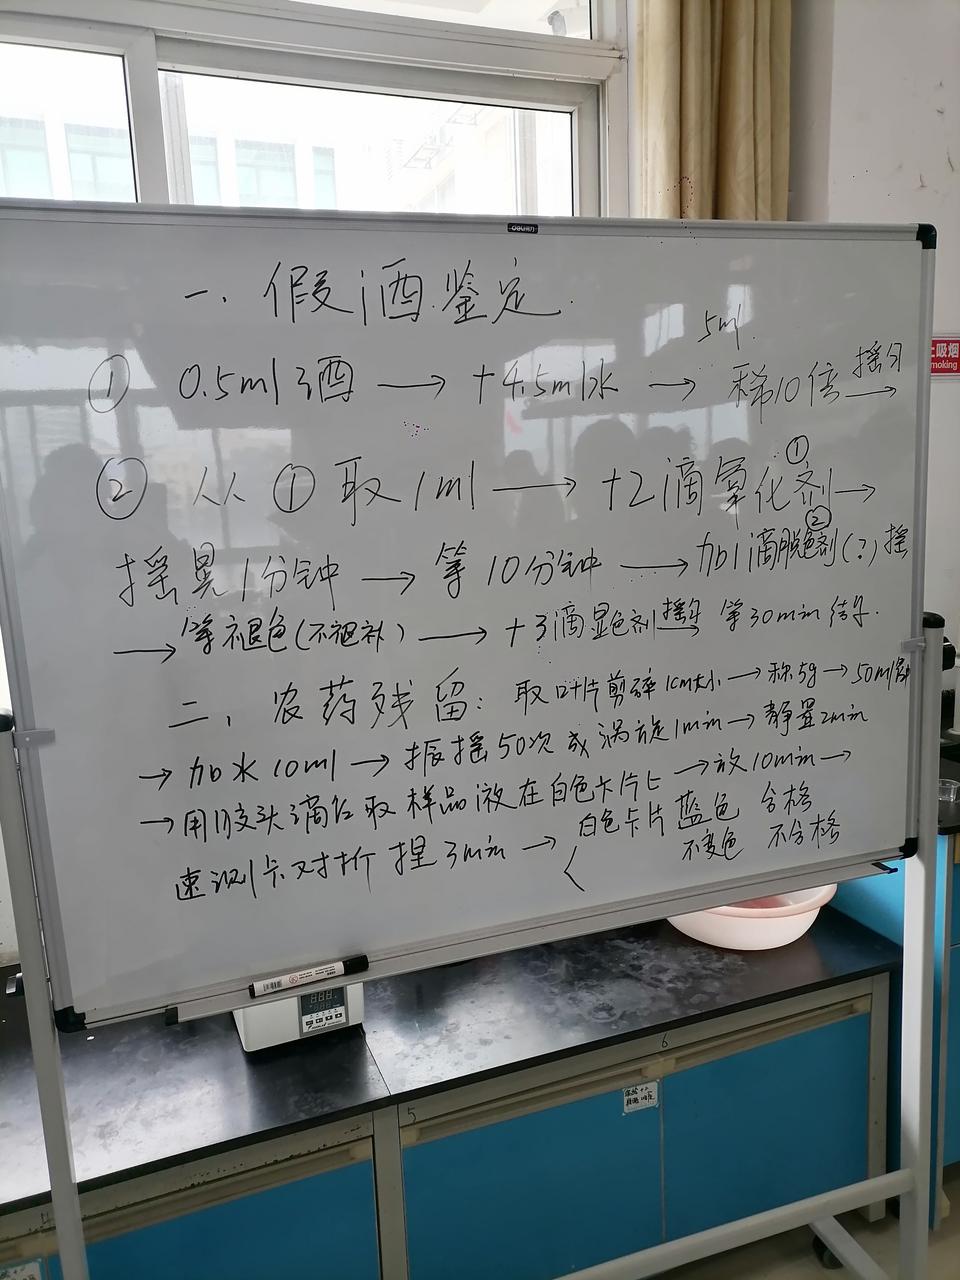 一、假酒鉴定
5ml
① 0.5ml酒 → +4.5ml水 → 稀10倍 摇匀 →
② 从①取1ml → +2滴氧化剂① →
摇晃1分钟 → 等10分钟 → 加1滴脱色剂②(2)摇
→ 等褪色(不褪补) → +3滴显色剂 摇匀→ 等30min
二、农药残留: 取叶片剪碎1cm大小 → 称5g → 50ml
→ 加水10ml → 振摇50次或涡旋1min → 静置2min
→ 用胶头滴管取样品液在白色卡片上 → 放10min →
速测卡对折捏3min → 白色卡片 蓝色 合格
不变色 不合格
deli得力
止吸烟
moking
5
6